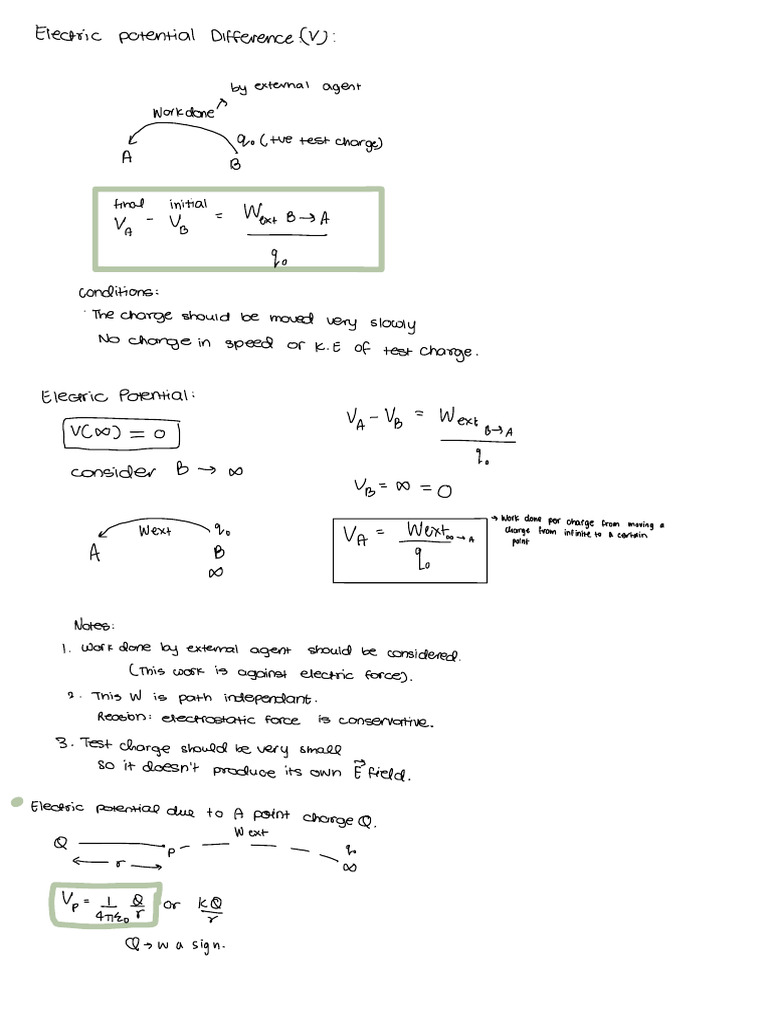 Electric potential Difference (V):
by external agent
Work done
q₀ (+ve test charge)
A
B
final initial
V_A - V_B = W_ext B→A / q₀
Conditions:
· The charge should be moved very slowly
No change in speed or K.E of test charge.
Electric Potential:
V(∞) = 0
consider B → ∞
V_A - V_B = W_ext B→A / q₀
V_B = ∞ = 0
Wext
q₀
A
B
∞
V_A = Wext ∞→A / q₀
→ Work done per charge from moving a
charge from infinite to a certain
point
Notes:
1. Work done by external agent should be considered.
(This work is against electric force).
2. This W is path independant.
Reason: electrostatic force is conservative.
3. Test charge should be very small
so it doesn't produce its own E⃗ field.
Electric potential due to A point charge Q.
Wext
Q
P
q₀
r
∞
V_P = 1/4πε₀ Q/r or kQ/r
Q → w a sign.